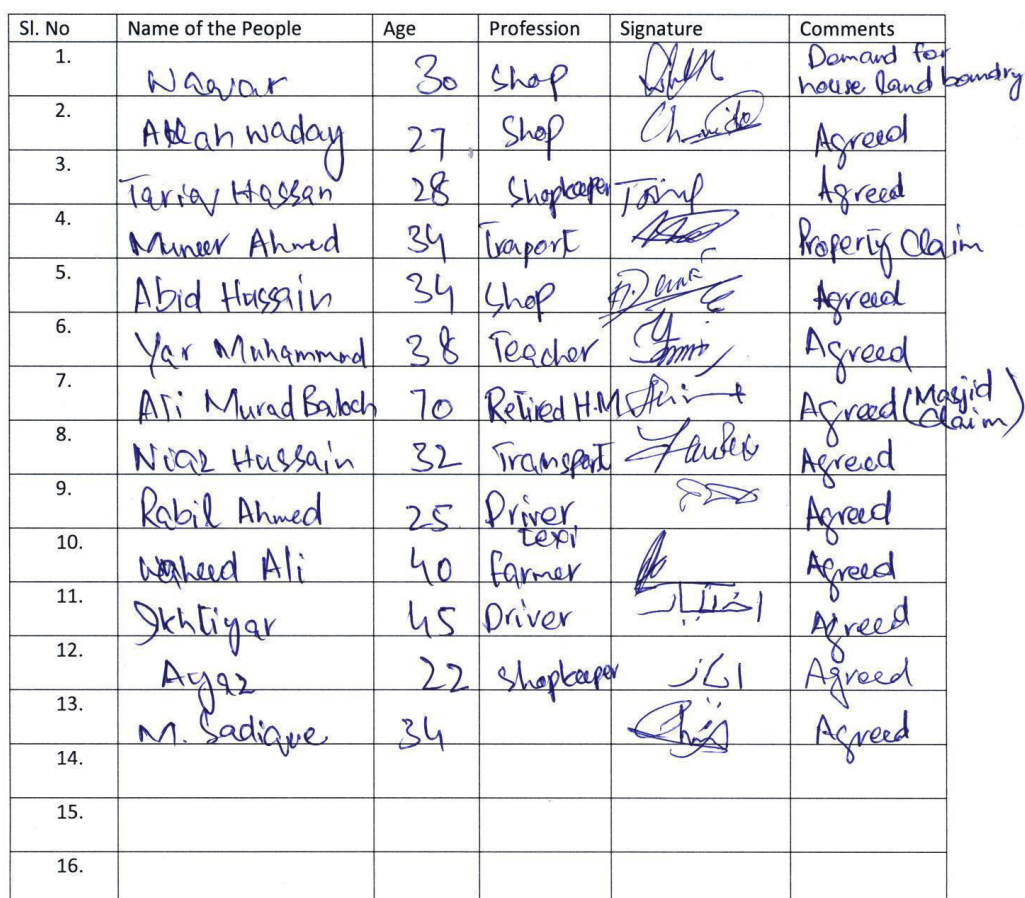 Sl. No Name of the People Age Profession Signature Comments
1. Waqar 30 Shop Demand for house land boundry
2. Allah waday 27 Shop Agreed
3. Tariq Hassan 28 Shopkeeper Agreed
4. Muneer Ahmed 34 Traport Property Claim
5. Abid Hussain 34 Shop Agreed
6. Yar Muhammad 38 Teacher Agreed
7. Ali Murad Baloch 70 Retired H.M Agreed (Masjid Claim)
8. Niaz Hussain 32 Transport Agreed
9. Rabil Ahmed 25 Driver texi Agreed
10. Waheed Ali 40 Farmer Agreed
11. Ikhtiyar 45 Driver اختیار Agreed
12. Ayaz 22 Shopkeeper اياز Agreed
13. M. Sadique 34 Agreed
14.
15.
16.